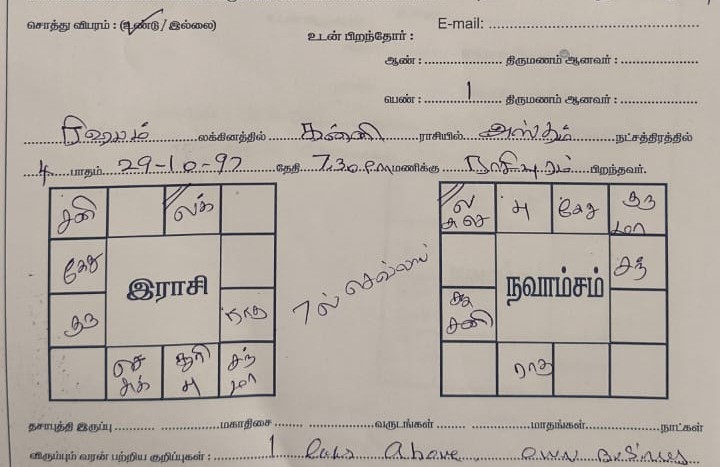 சொத்து விபரம் : (உண்டு / இல்லை)
E-mail: ..............................................
உடன் பிறந்தோர் :
ஆண் : ..................... திருமணம் ஆனவர் : .....................
பெண் : ..........1.......... திருமணம் ஆனவர் : .....................
ரிஷபம் லக்கினத்தில் கன்னி ராசியில் அஸ்தம் நட்சத்திரத்தில்
4 பாதம் 29-10-97 தேதி 7.30 P.M மணிக்கு ராசிபுரம் பிறந்தவர்.
சனி லக்
கேது
குரு ராகு
செ சுக் சூரி பு சந் மா
இராசி
7ல் செவ்வாய்
ல பு கேது குரு மா
சந்
சனி
ராகு
நவாம்சம்
தசாபுத்தி இருப்பு ............ மகாதிசை ............ வருடங்கள் ............ மாதங்கள் ............ நாட்கள்
விரும்பும் வரன் பற்றிய குறிப்புகள் : 1 Above own